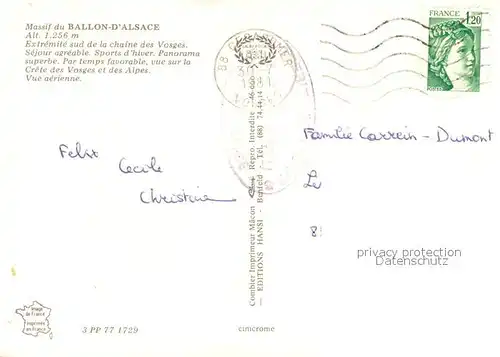 Massif du BALLON-D'ALSACE
Alt. 1.256 m
Extrémité sud de la chaîne des Vosges.
Séjour agréable. Sports d'hiver. Panorama
superbe. Par temps favorable, vue sur la
Crête des Vosges et des Alpes.
Vue aérienne.
FRANCE
1,20
88
Felix
Cecile
Christiane
Famille Carrein - Dumont
8
privacy protection
Datenschutz
Combier Imprimeur Mâcon
Repro. Interdite
EDITIONS HANSI - Benfeld - Tél. (88) 74.44.14
image
de France
imprimée
en France
3 PP 77 1729
cimcrome